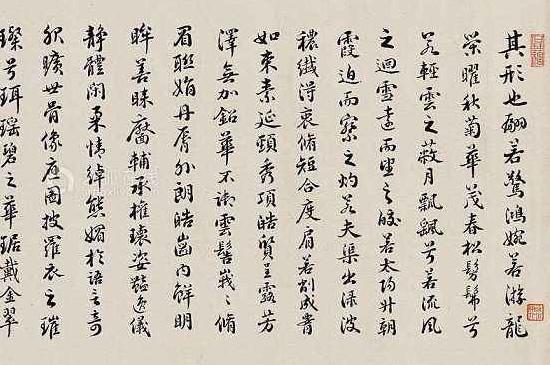 其形也翩若驚鴻婉若游龍
榮曜秋菊華茂春松髣髴兮
若輕雲之蔽月飄飄兮若流風
之迴雪遠而望之皎若太陽升朝
霞迫而察之灼若夫渠出淥波
穠纖得衷脩短合度肩若削成腰
如束素延頸秀項皓質呈露芳
澤無加鉛華不御雲髻峩〻脩
眉聯娟丹脣外朗皓齒內鮮明
眸善睞靨輔承權瓌姿豔逸儀
靜體閑柔情綽態媚於語言奇
服曠世骨像應圖披羅衣之璀
璨兮珥瑤碧之華琚戴金翠